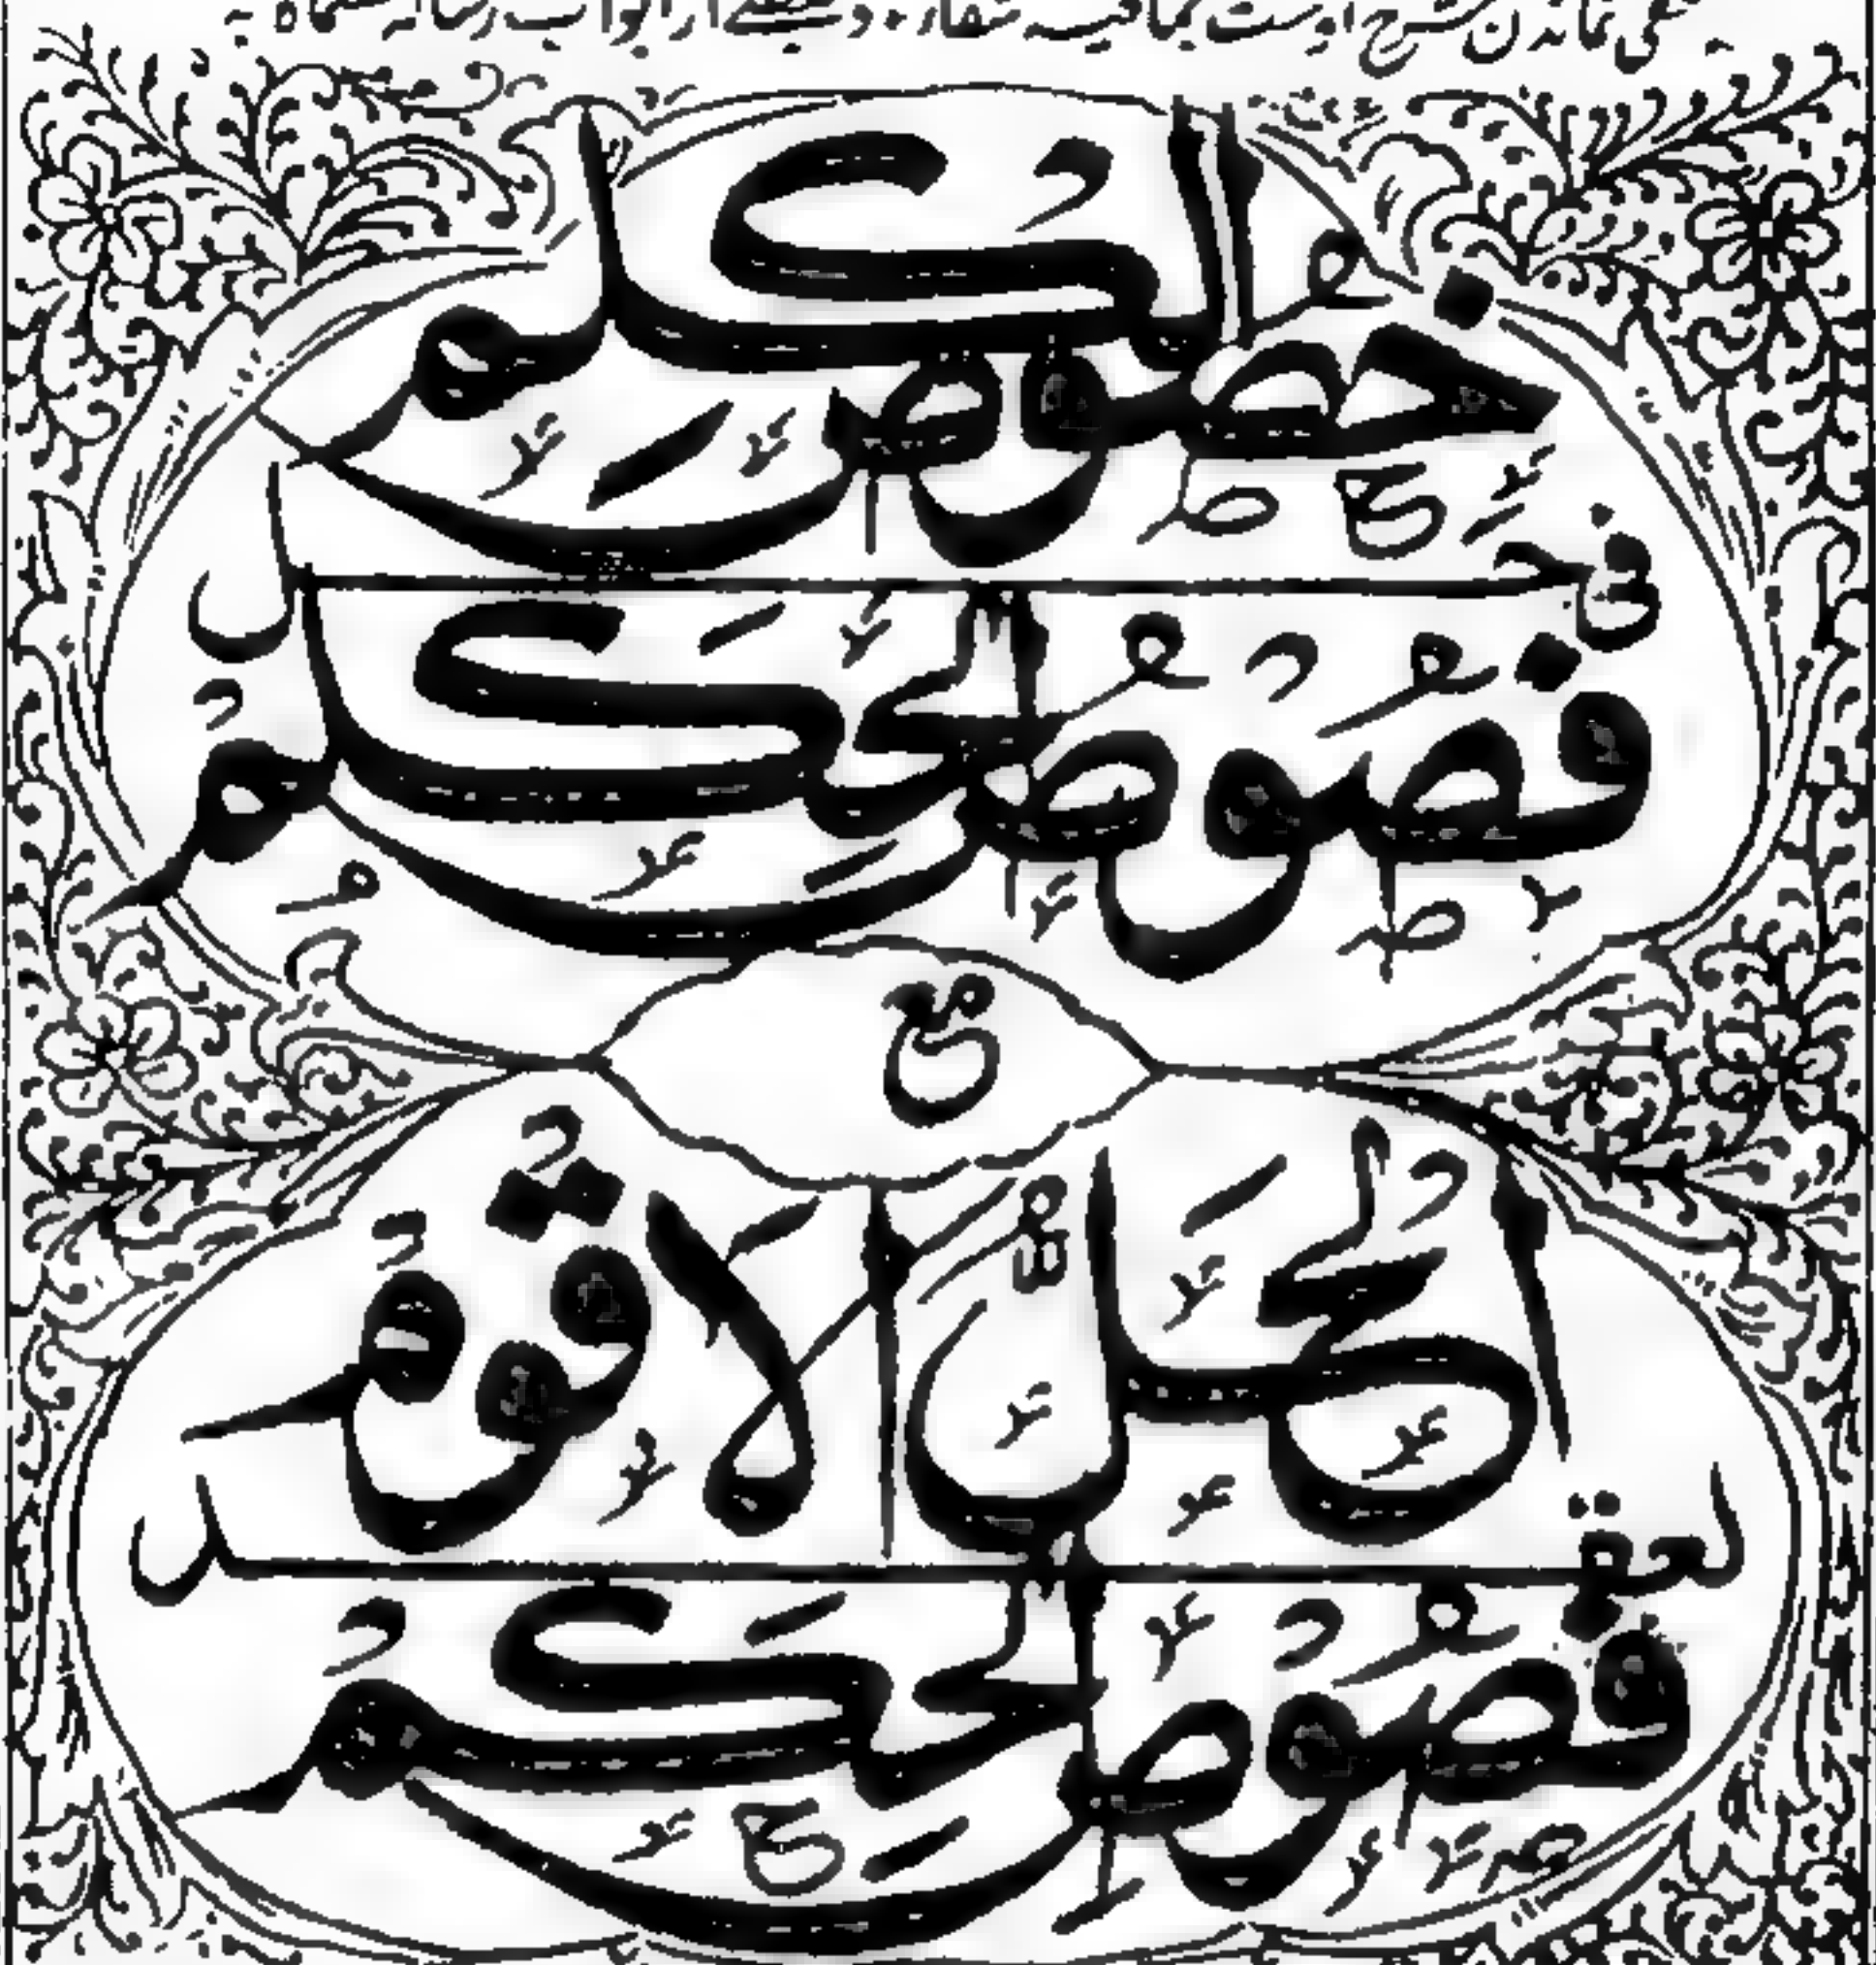 شرح اوست
خصوص الكلم
في حل
فصوص الحكلم
مع
الحل الاقوم
لعقد
فصوص الحكم